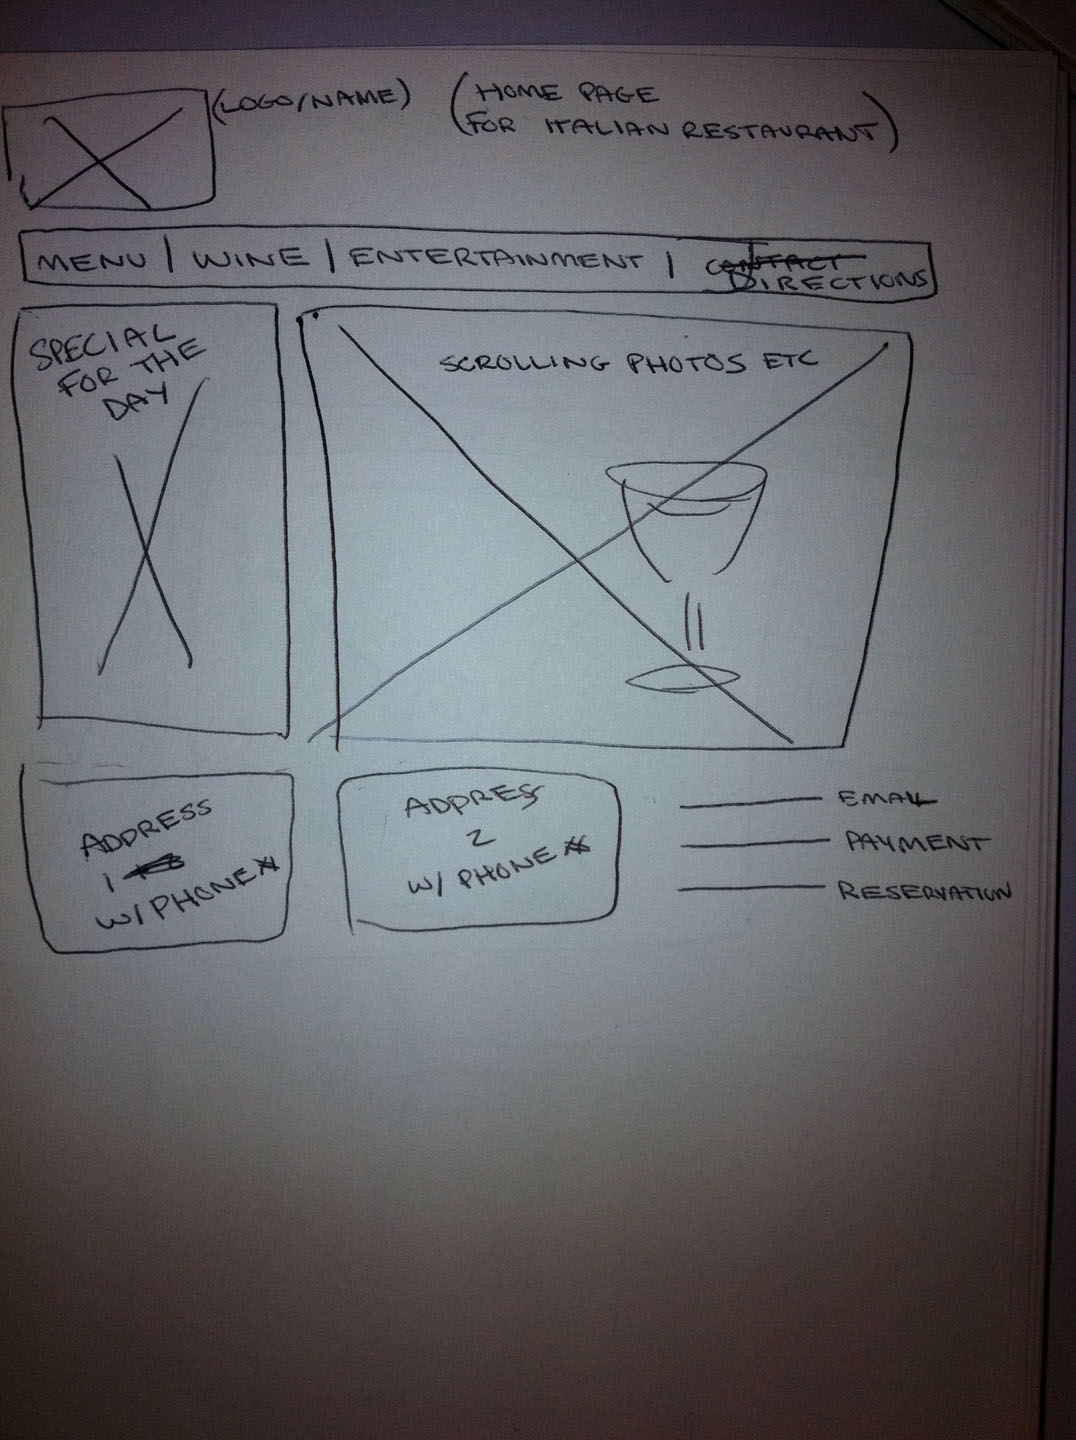 (LOGO/NAME)
(HOME PAGE
FOR ITALIAN RESTAURANT)
MENU | WINE | ENTERTAINMENT | CONTACT
DIRECTIONS
SPECIAL
FOR THE
DAY
SCROLLING PHOTOS ETC
ADDRESS
1
W/ PHONE #
ADDRES
2
W/ PHONE #
EMAIL
PAYMENT
RESERVATION